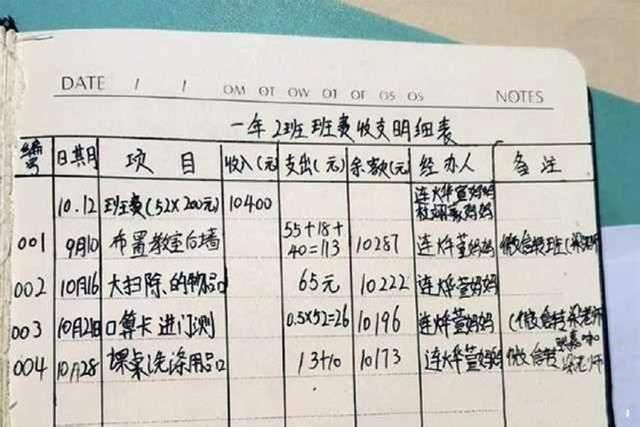 DATE / / OM OT OW OT OF OS OS NOTES
一年2班班费收支明细表
编号 日期 项目 收入(元) 支出(元) 余额(元) 经办人 备注
10.12 班费(52×200元) 10400 连烨萱妈妈
妈妈
001 9月10 布置教室后墙 55+18+
40=113 10287 连烨萱妈妈 微信转班
002 10月16 大扫除、的物品 65元 10222 连烨萱妈妈
003 10月21日 口算卡进门测 0.5×52=26 10196 连烨萱妈妈 (微信转梁老师
004 10月28 课桌洗涤用品 13+10 10173 连烨萱妈妈 微信转
梁老师